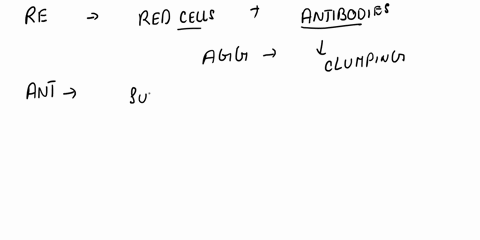 RE → RED CELLS + ANTIBODIES
AGG → ↓ CLUMPING
ANT → SU